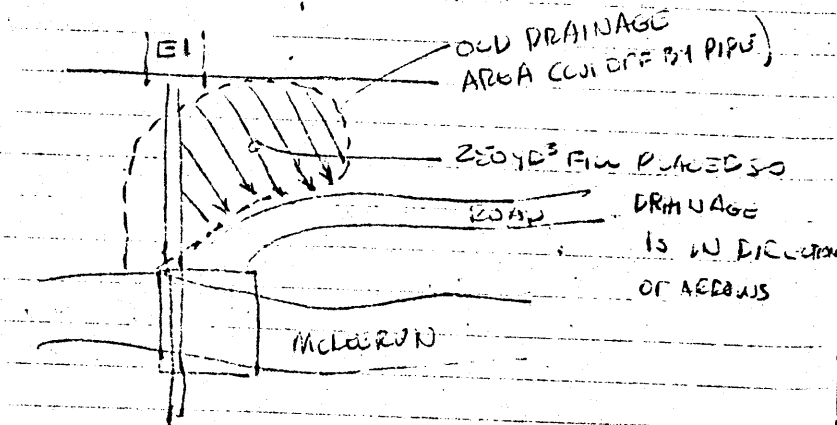 E1
OLD DRAINAGE
AREA CUT OFF BY PIPE
YD³ FILL PLACED SO
DRAINAGE
IS IN DIRECTION
OF ARROWS
ROAD